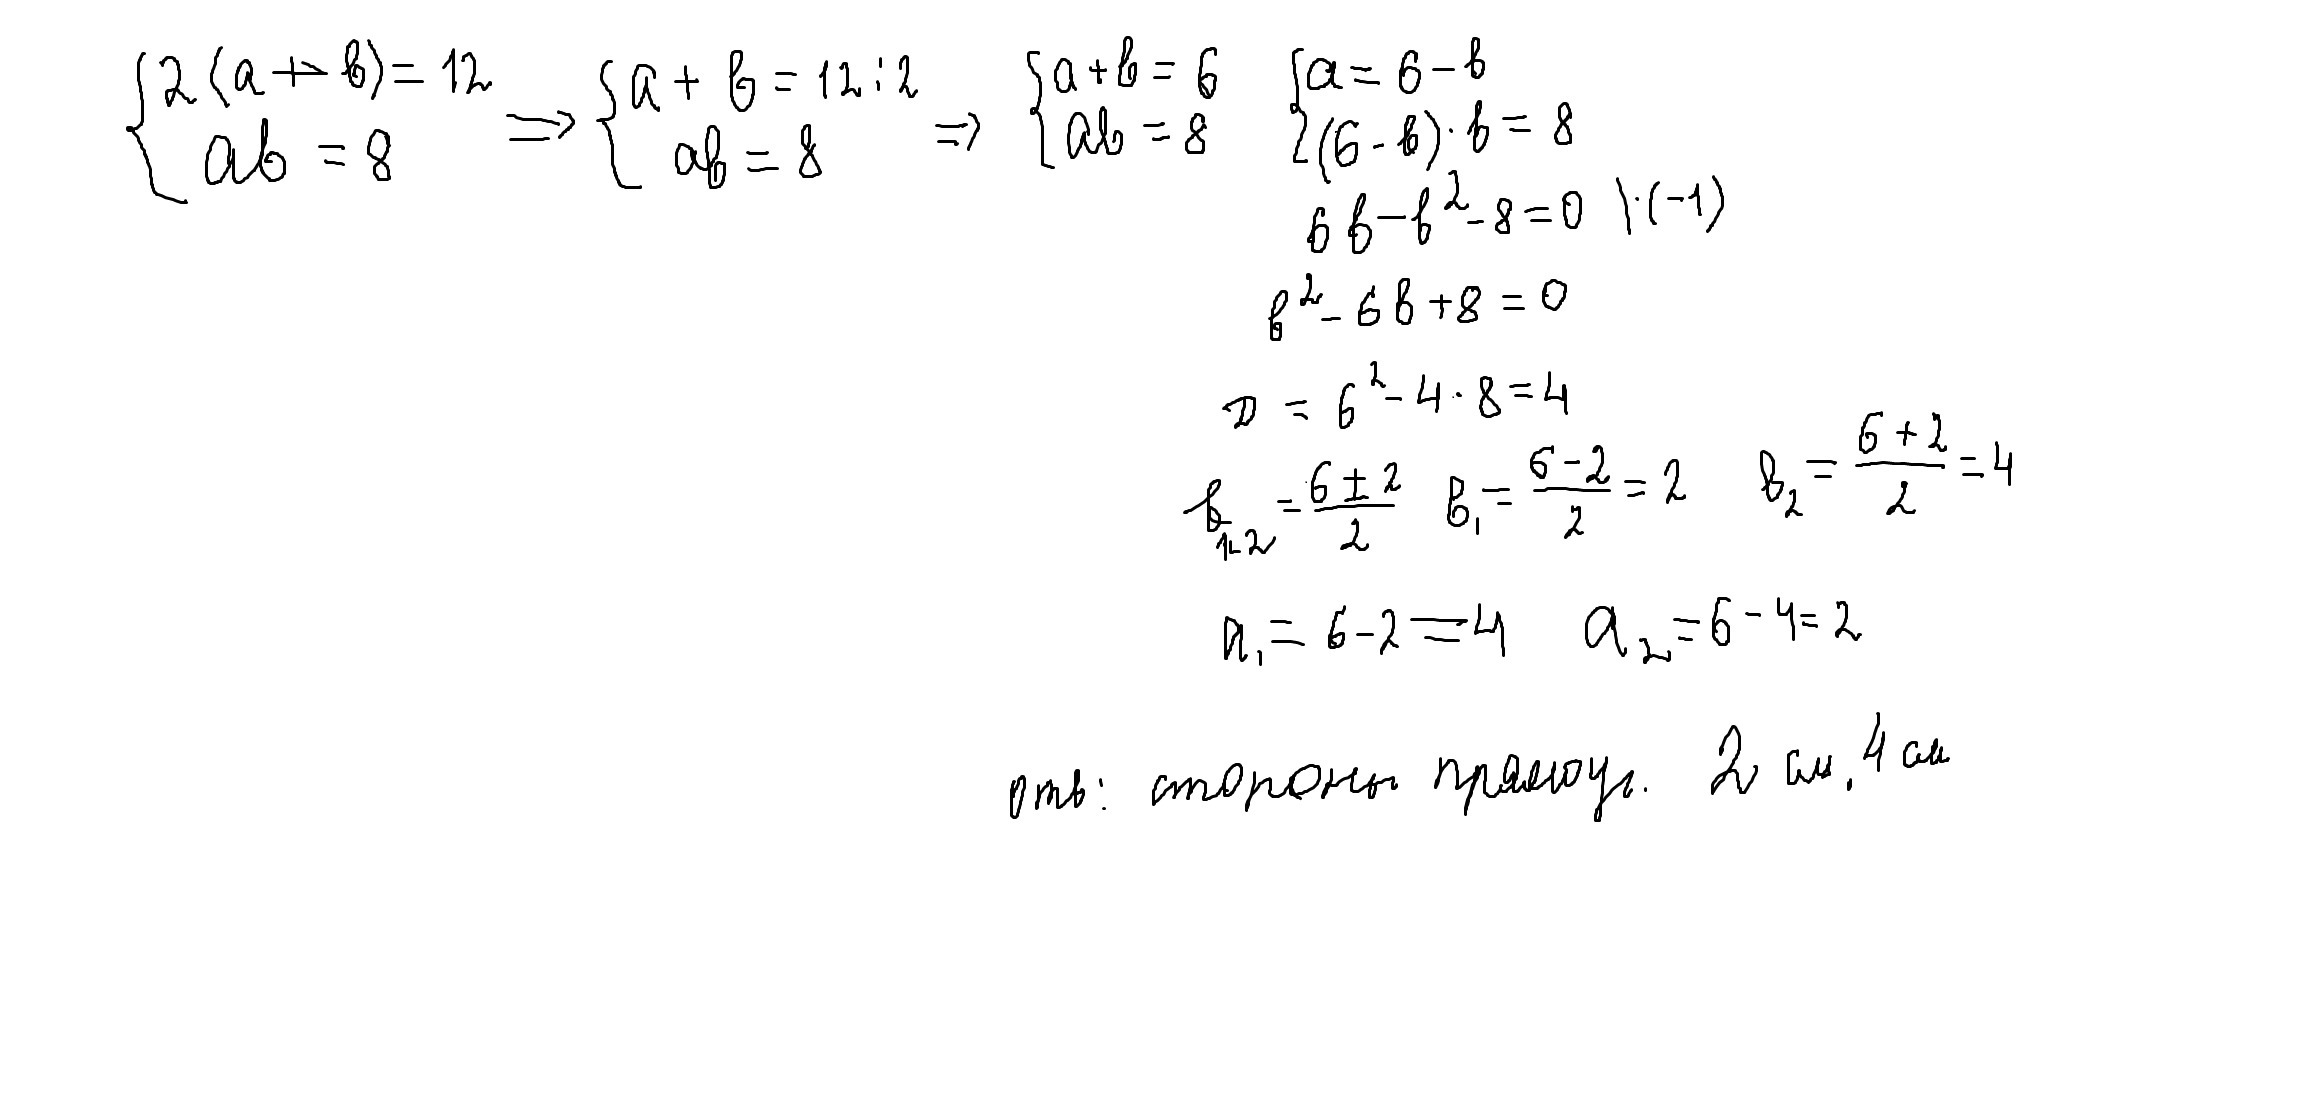 {2(a+b)=12 => {a+b=12:2 => {a+b=6 {a=6-b
ab=8 ab=8 ab=8 (6-b)·b=8
6b-b²-8=0 |·(-1)
b²-6b+8=0
D=6²-4·8=4
b₁,₂=(6±2)/2 b₁=(6-2)/2=2 b₂=(6+2)/2=4
a₁=6-2=4 a₂=6-4=2
отв: стороны прямоуг. 2 см, 4 см